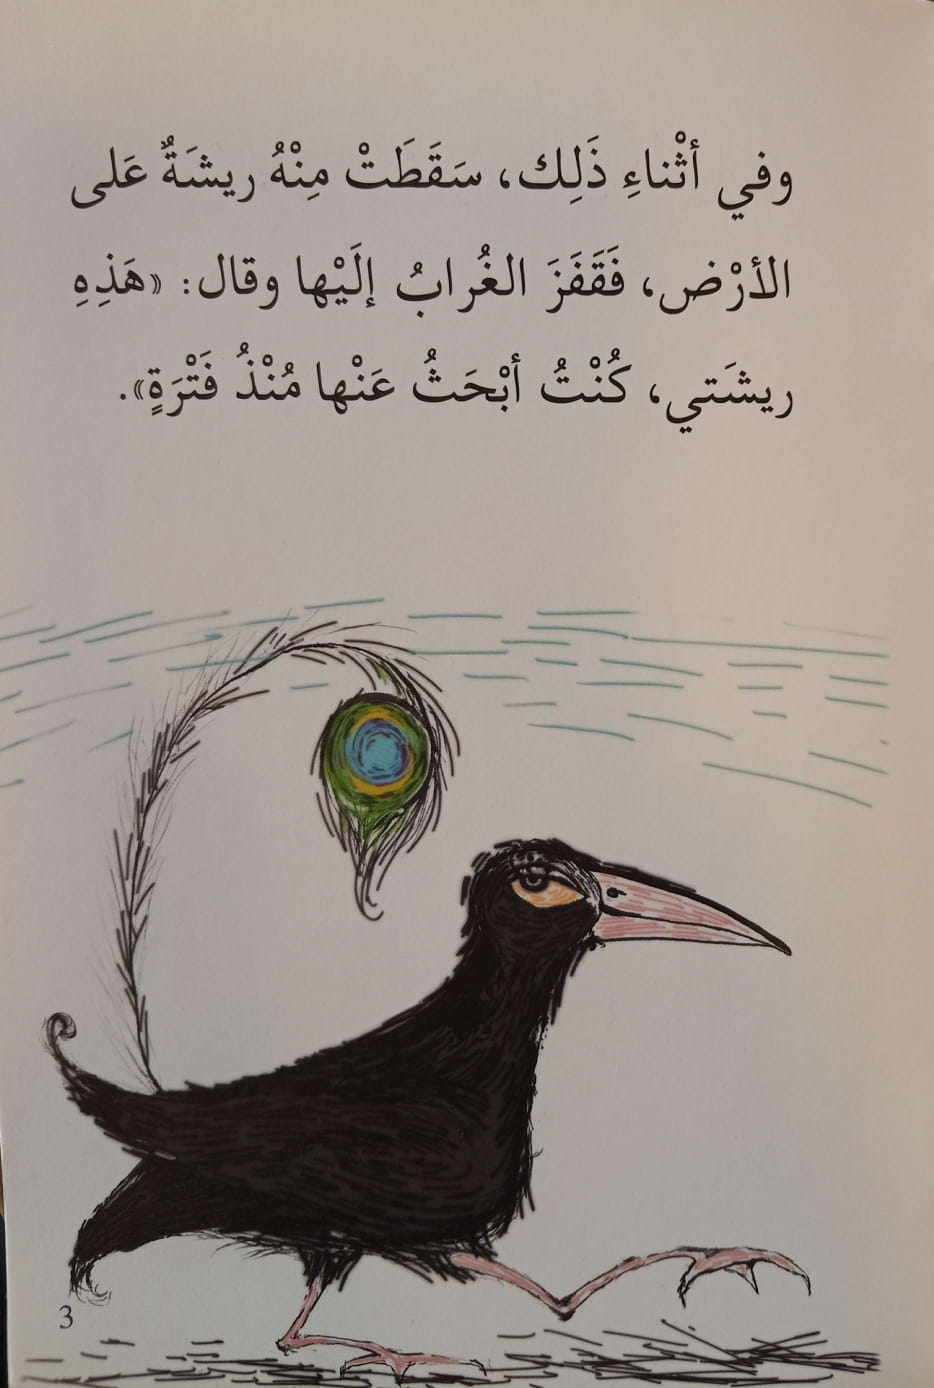 وفي أثْناءِ ذَلِك، سَقَطَتْ مِنْهُ ريشَةٌ عَلى
الأرْض، فَقَفَزَ الغُرابُ إلَيْها وقال: «هَذِهِ
ريشَتي، كُنْتُ أبْحَثُ عَنْها مُنْذُ فَتْرَةٍ».
3